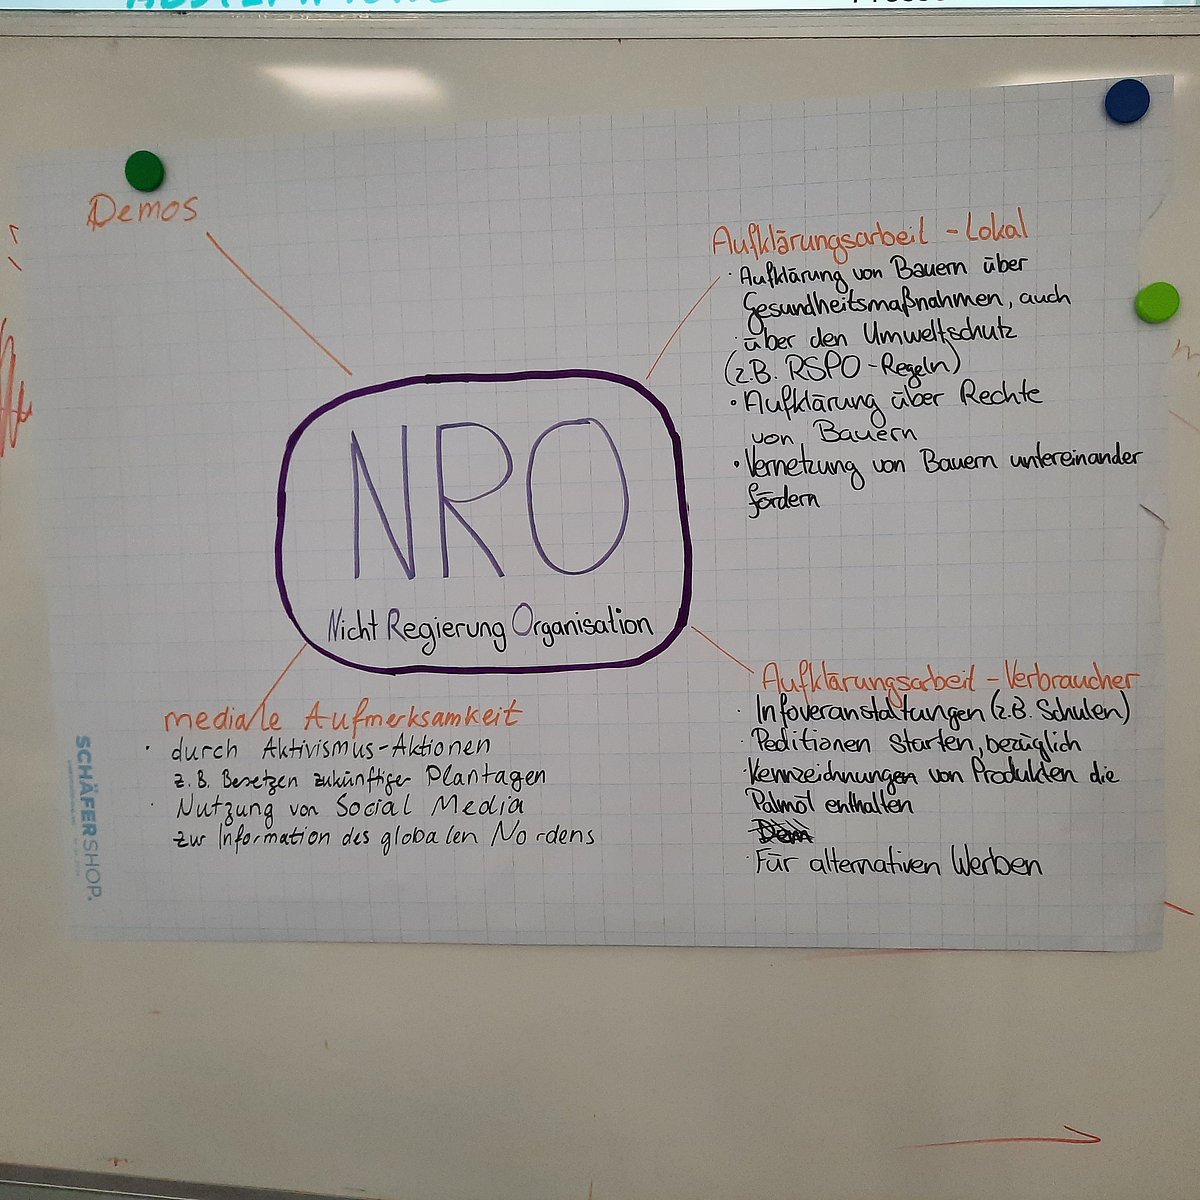 Demos
Aufklärungsarbeit - Lokal
· Aufklärung von Bauern über
Gesundheitsmaßnahmen, auch
über den Umweltschutz
(z.B. RSPO-Regeln)
· Aufklärung über Rechte
von Bauern
· Vernetzung von Bauern untereinander
fördern
NRO
Nicht Regierung Organisation
mediale Aufmerksamkeit
· durch Aktivismus-Aktionen
z.B. Besetzen zukünftiger Plantagen
· Nutzung von Social Media
zur Information des globalen Nordens
Aufklärungsarbeit - Verbraucher
· Infoveranstaltungen (z.B. Schulen)
· Peditionen starten, bezüglich
· Kennzeichnungen von Produkten die
Palmöl enthalten
· Für alternativen Werben
SCHÄFERSHOP.